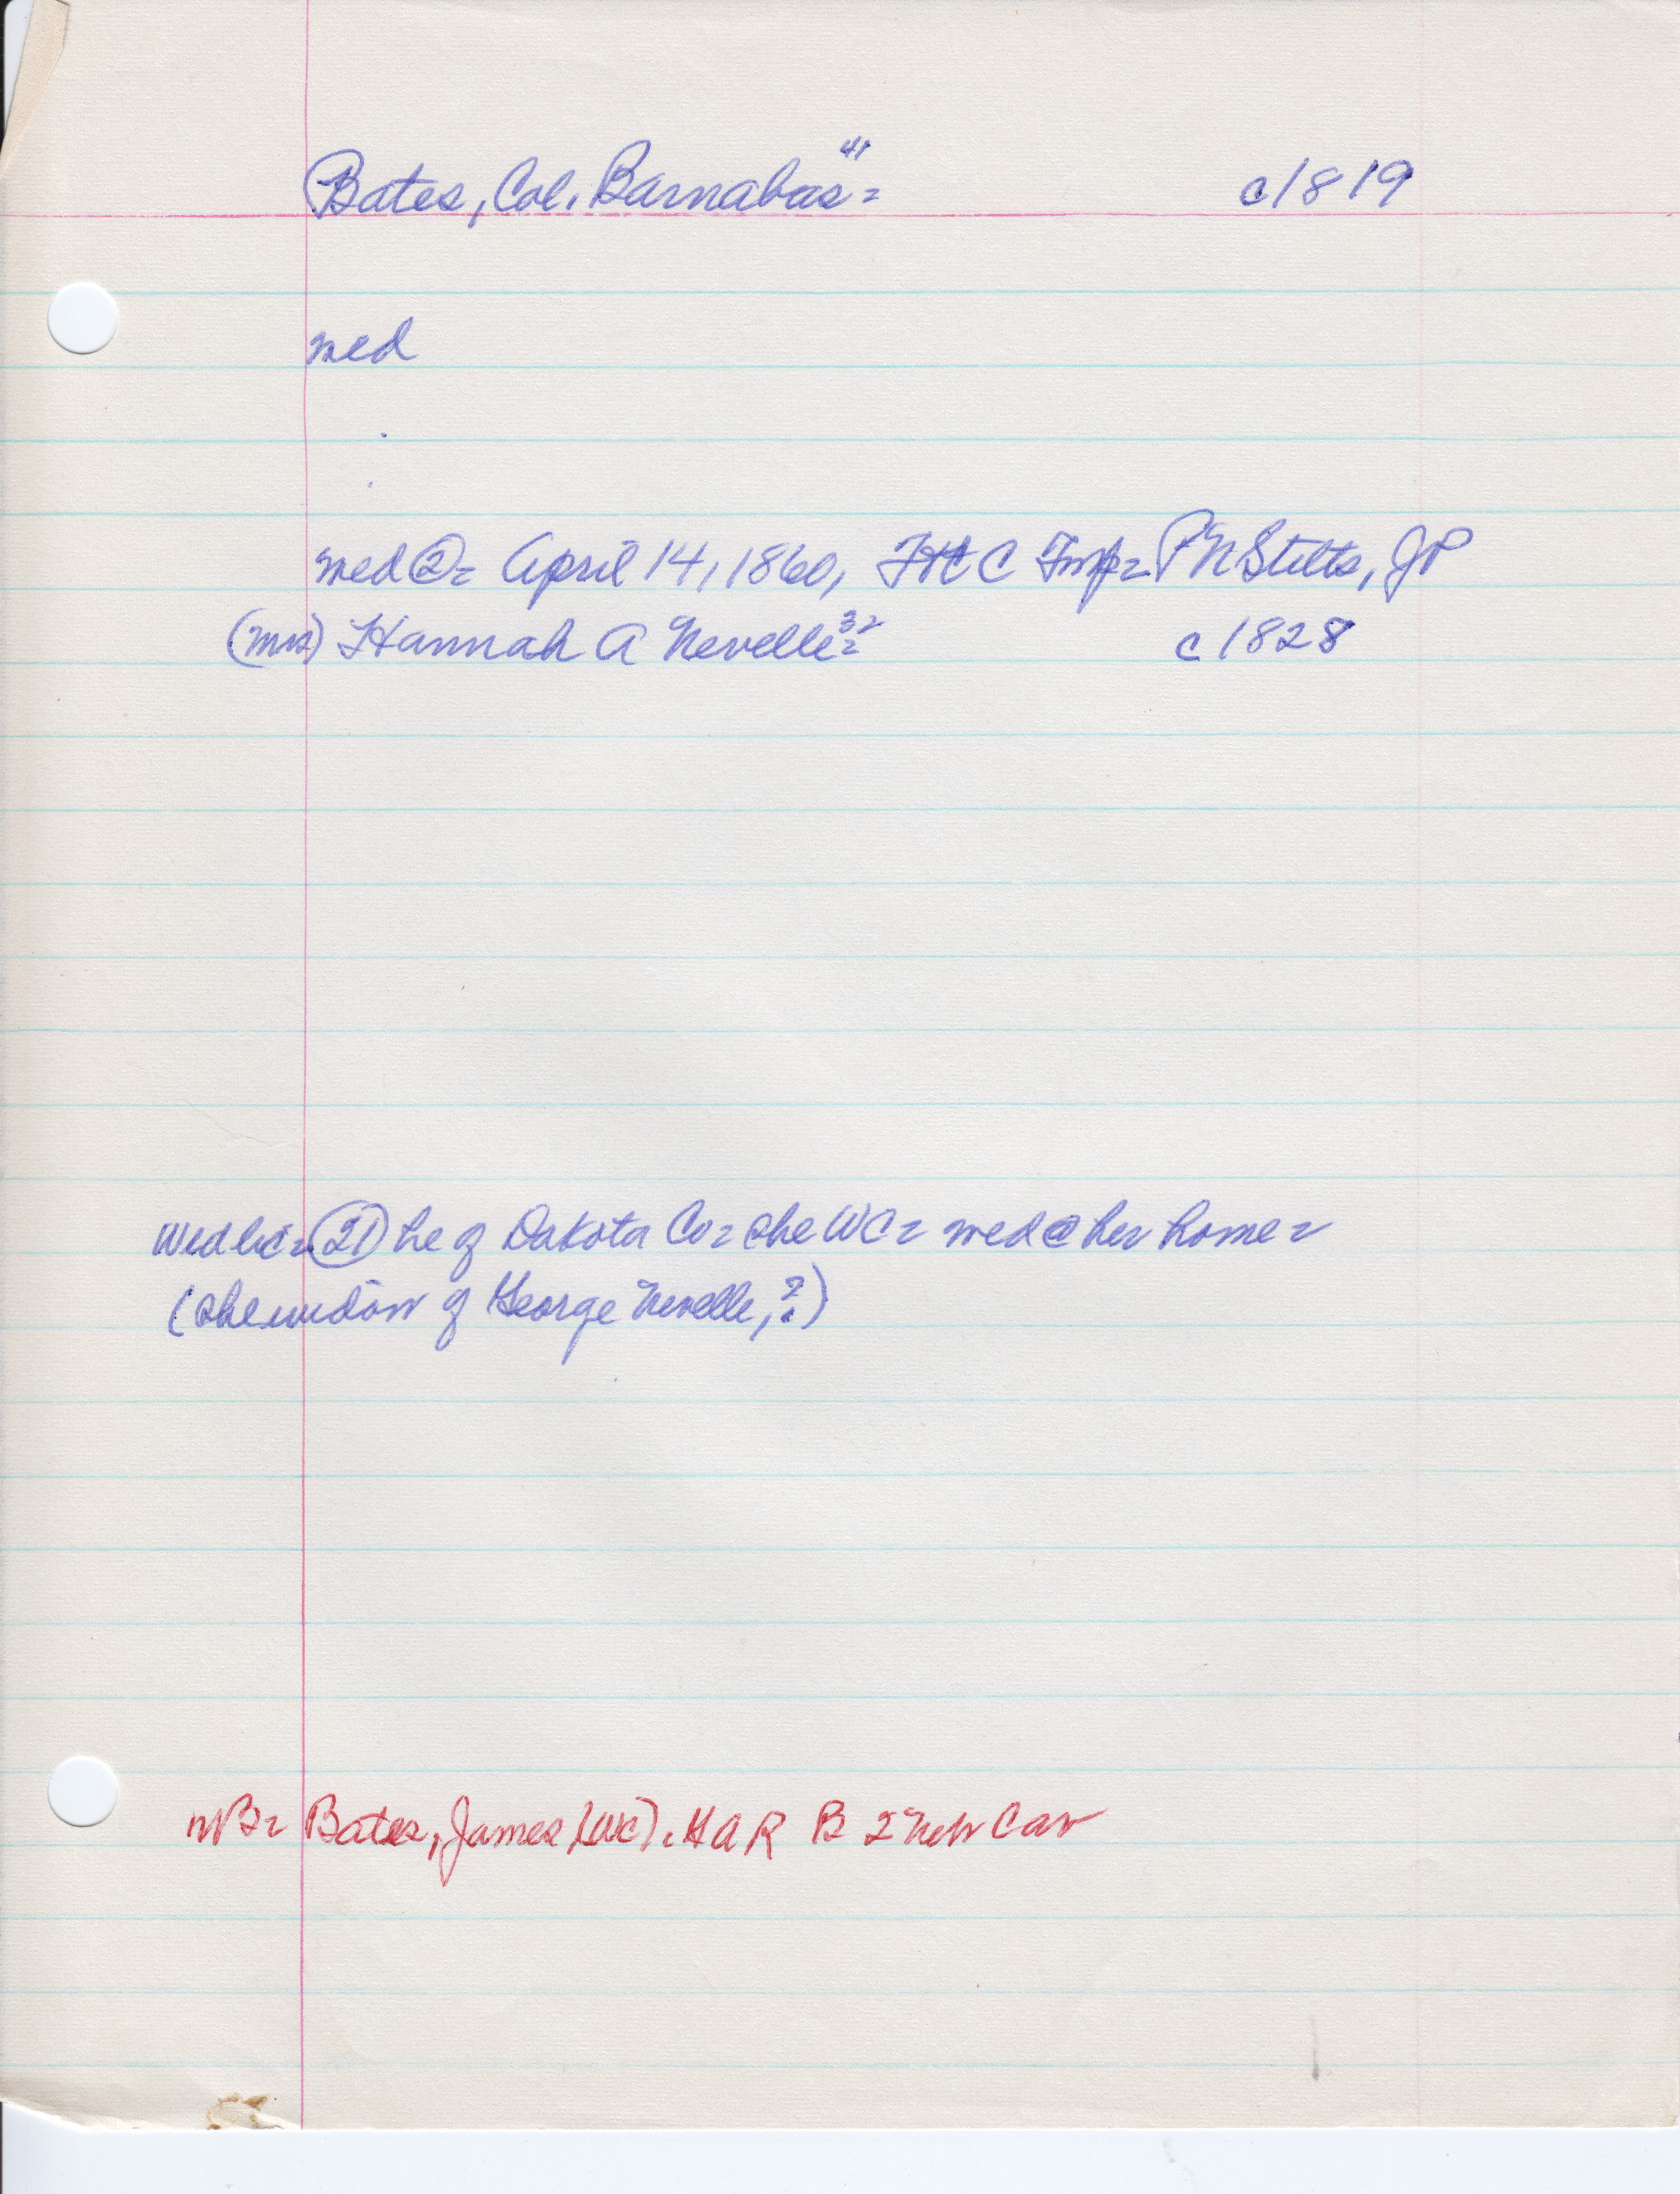 Bates, Col. Barnabas 41 = c1819
wed
wed @ = April 14, 1860, FtC Twp = P N Stilts, JP
(mrs) Hannah A Nevelle 32 = c1828
Wed lic = (21) he of Dakota Co = she WC = wed @ her home =
(she widow of George Nevelle, ?)
NB = Bates, James (WC). GAR B 2 Neb Cav